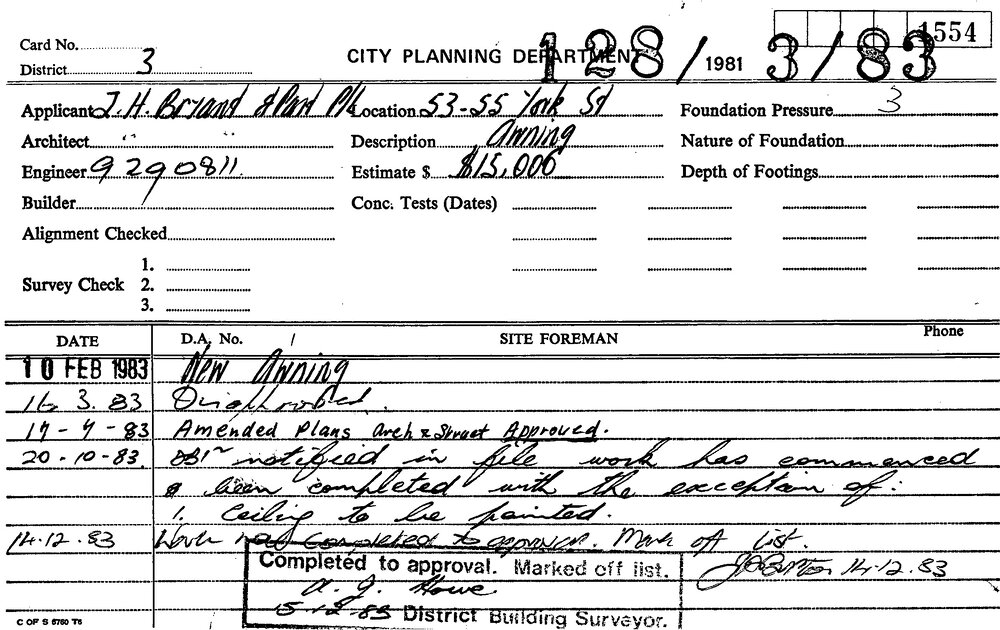 1554
Card No. CITY PLANNING DEPARTMENT 128/1981 3/83
District 3
Applicant J.H. Bryant & Part P/L Location 53-55 York St Foundation Pressure 3
Architect " " Description Awning Nature of Foundation
Engineer 9290811 Estimate $ $15,000 Depth of Footings
Builder Conc. Tests (Dates)
Alignment Checked
1.
Survey Check 2.
3.
DATE D.A. No. / SITE FOREMAN Phone
10 FEB 1983 New Awning
3. 83
83 Amended Plans Arch & Struct Approved.
20-10-83. notified in file work has commenced
& been completed with the exception of:
1. Ceiling to be painted.
14.12.83 Work has completed to approval. Mark off list.
Completed to approval. Marked off list. 14-12-83
A. J. Howe
15-12-83 District Building Surveyor.
C OF S 5750 T5